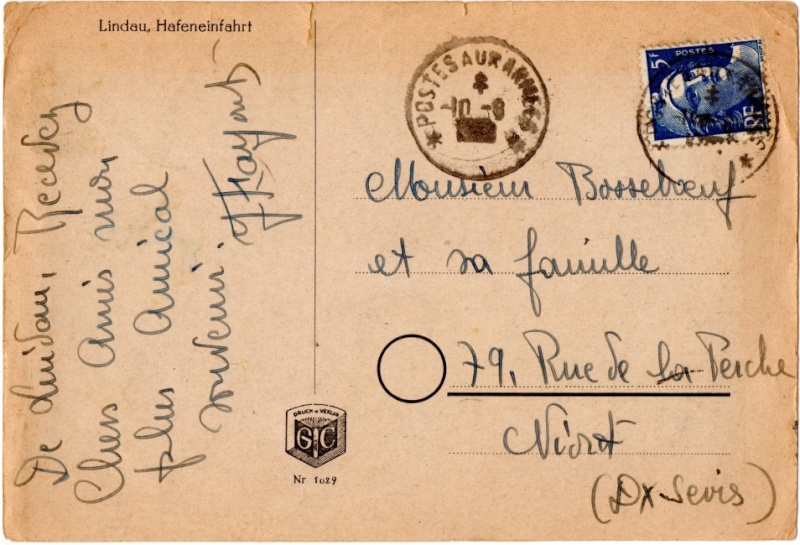 Lindau, Hafeneinfahrt
De Lindau, Recevez
Chers Amis mon
plus Amical
souvenir.
DRUCK u. VERLAG
G C
Nr 1029
*POSTES AUX ARMÉES*
10 - 8
5F
POSTES
RF
Monsieur Bossebœuf
et sa famille
79, Rue de la Perche
Niort
(Dx Sevis)